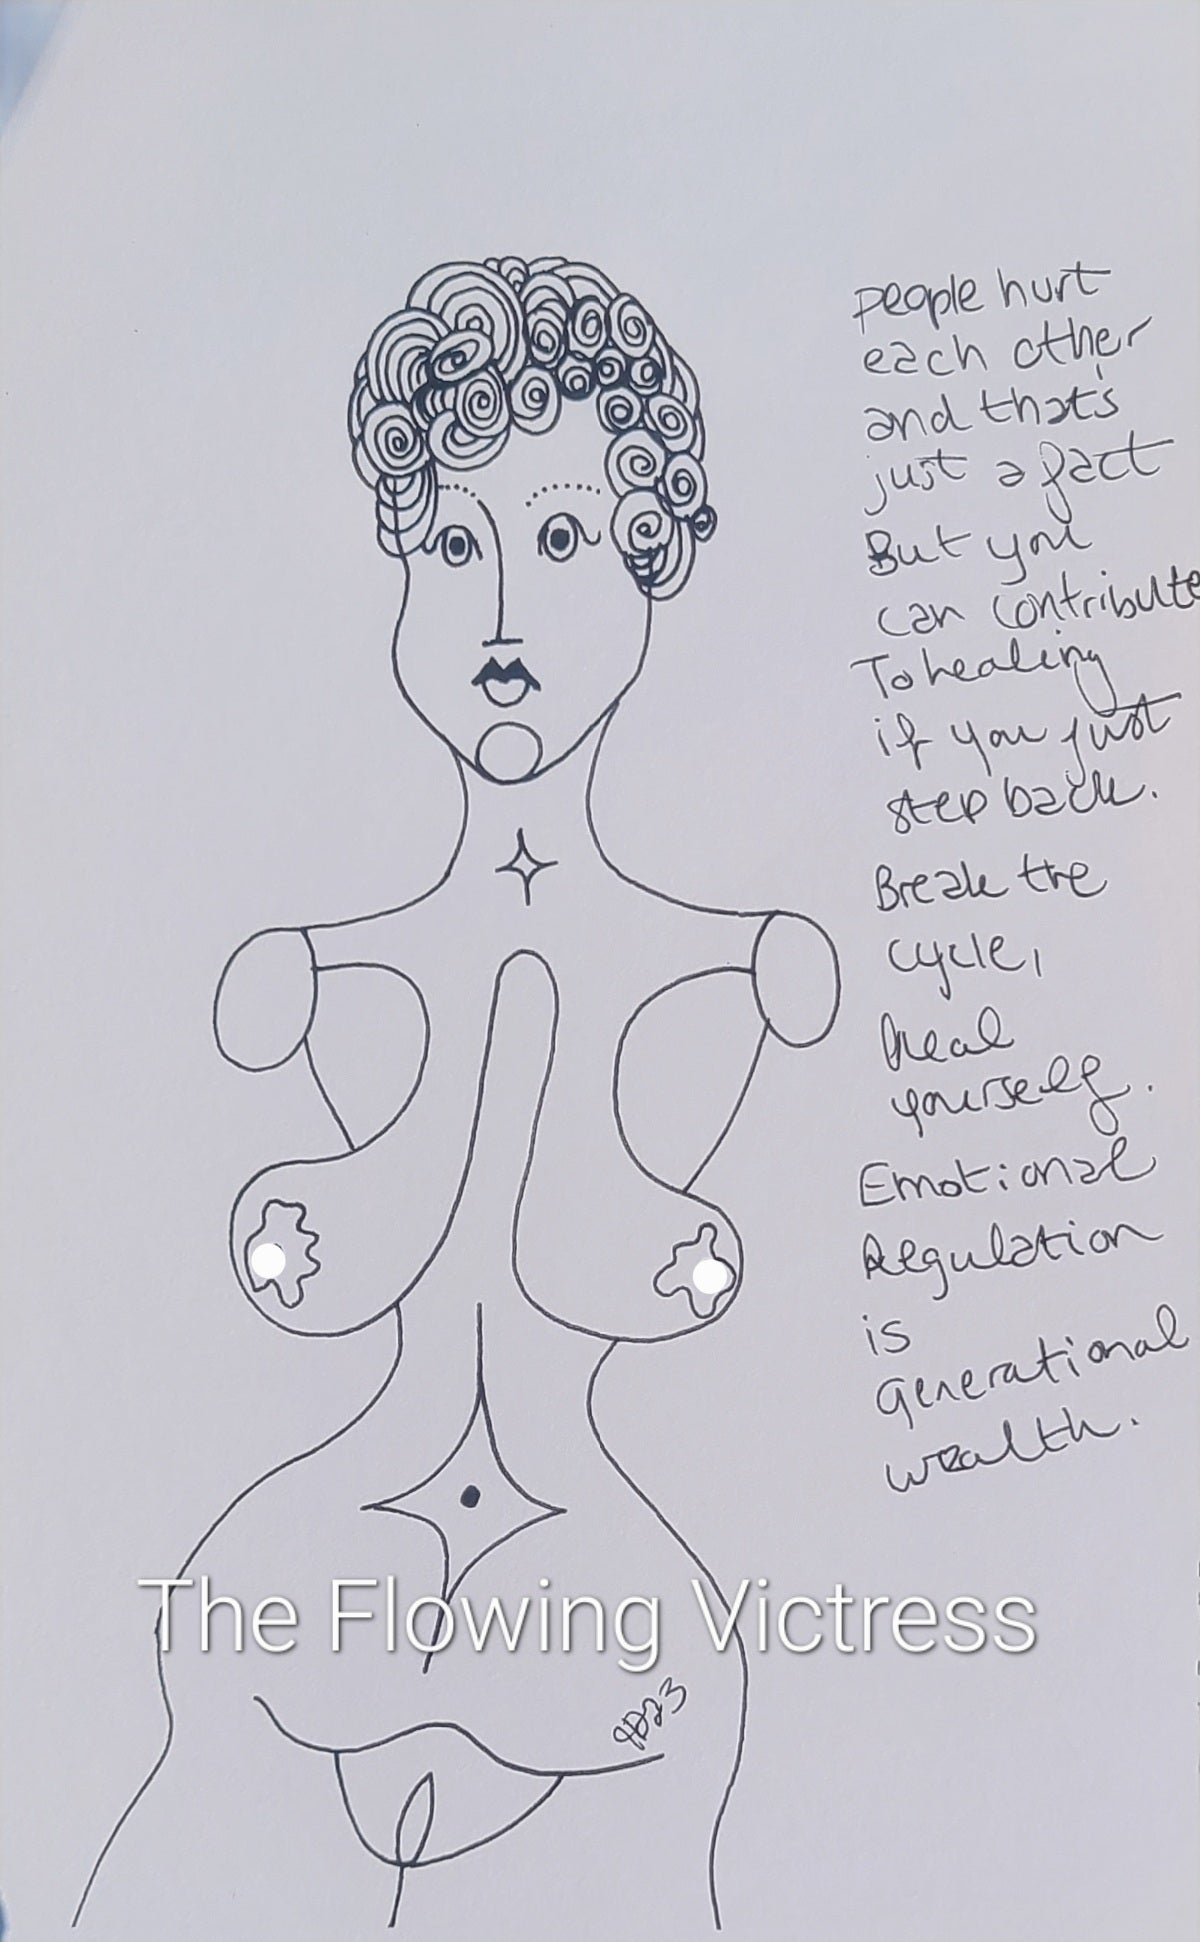 people hurt
each other
and that's
just a fact
But you
can contribute
To healing
if you just
step back.
Break the
cycle,
Heal
yourself.
Emotional
Regulation
is
Generational
wealth.
The Flowing Victress